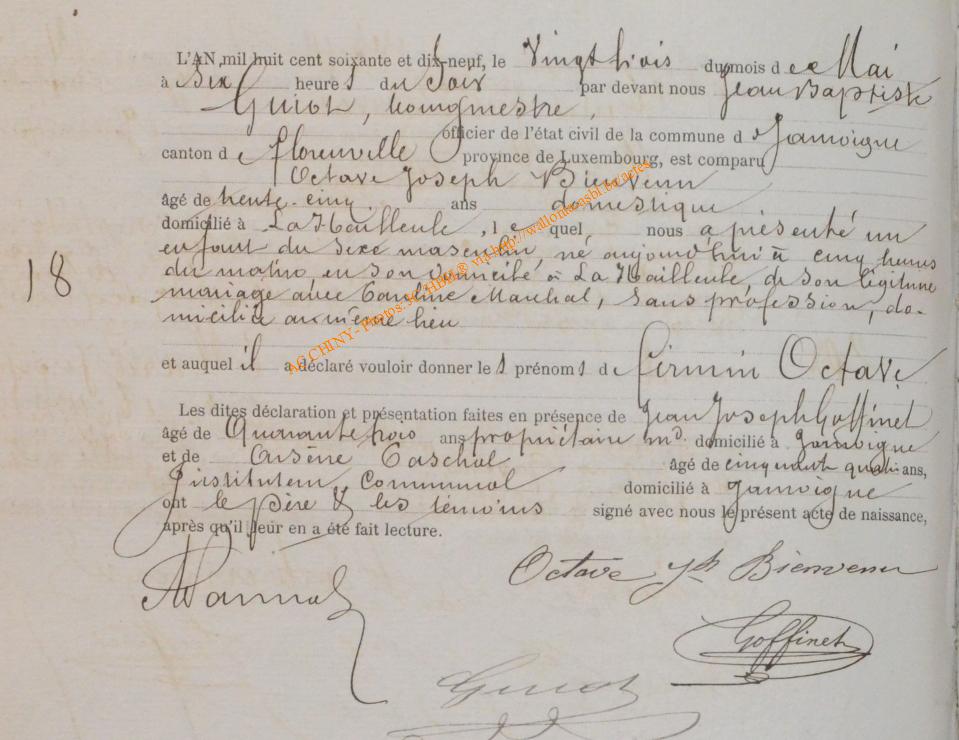 L'AN mil huit cent soixante et dix-neuf, le Vingt trois du mois de Mai
à Six heures du Soir par devant nous Jean Baptiste
Guiot, bourgmestre,
officier de l'état civil de la commune de Jamoigne
canton de Florenville province de Luxembourg, est comparu
Octave Joseph Bienvenu
âgé de trente-cinq ans domestique
domicilié à La Hailleule, lequel, nous a présenté un
enfant du sexe masculin, né aujourd'hui à cinq heures
du matin, en son domicile à La Hailleule, de son légitime
18
mariage avec Marchal, sans profession, do-
miciliée au même lieu
et auquel il a déclaré vouloir donner les prénoms de Firmin Octave
Les dites déclaration et présentation faites en présence de Jean Joseph Goffinet
âgé de Quarante trois ans propriétaire md. domicilié à Jamoigne
et de Arsène âgé de cinquante quatre ans,
Instituteur Communal domicilié à Jamoigne
ont le père & les témoins signé avec nous le présent acte de naissance,
après qu'il leur en a été fait lecture.
Octave Jph Bienvenu
Goffinet
Guiot
AG CHINY - Photos: JC HBM® via http://wallonia-asbl.be/actes